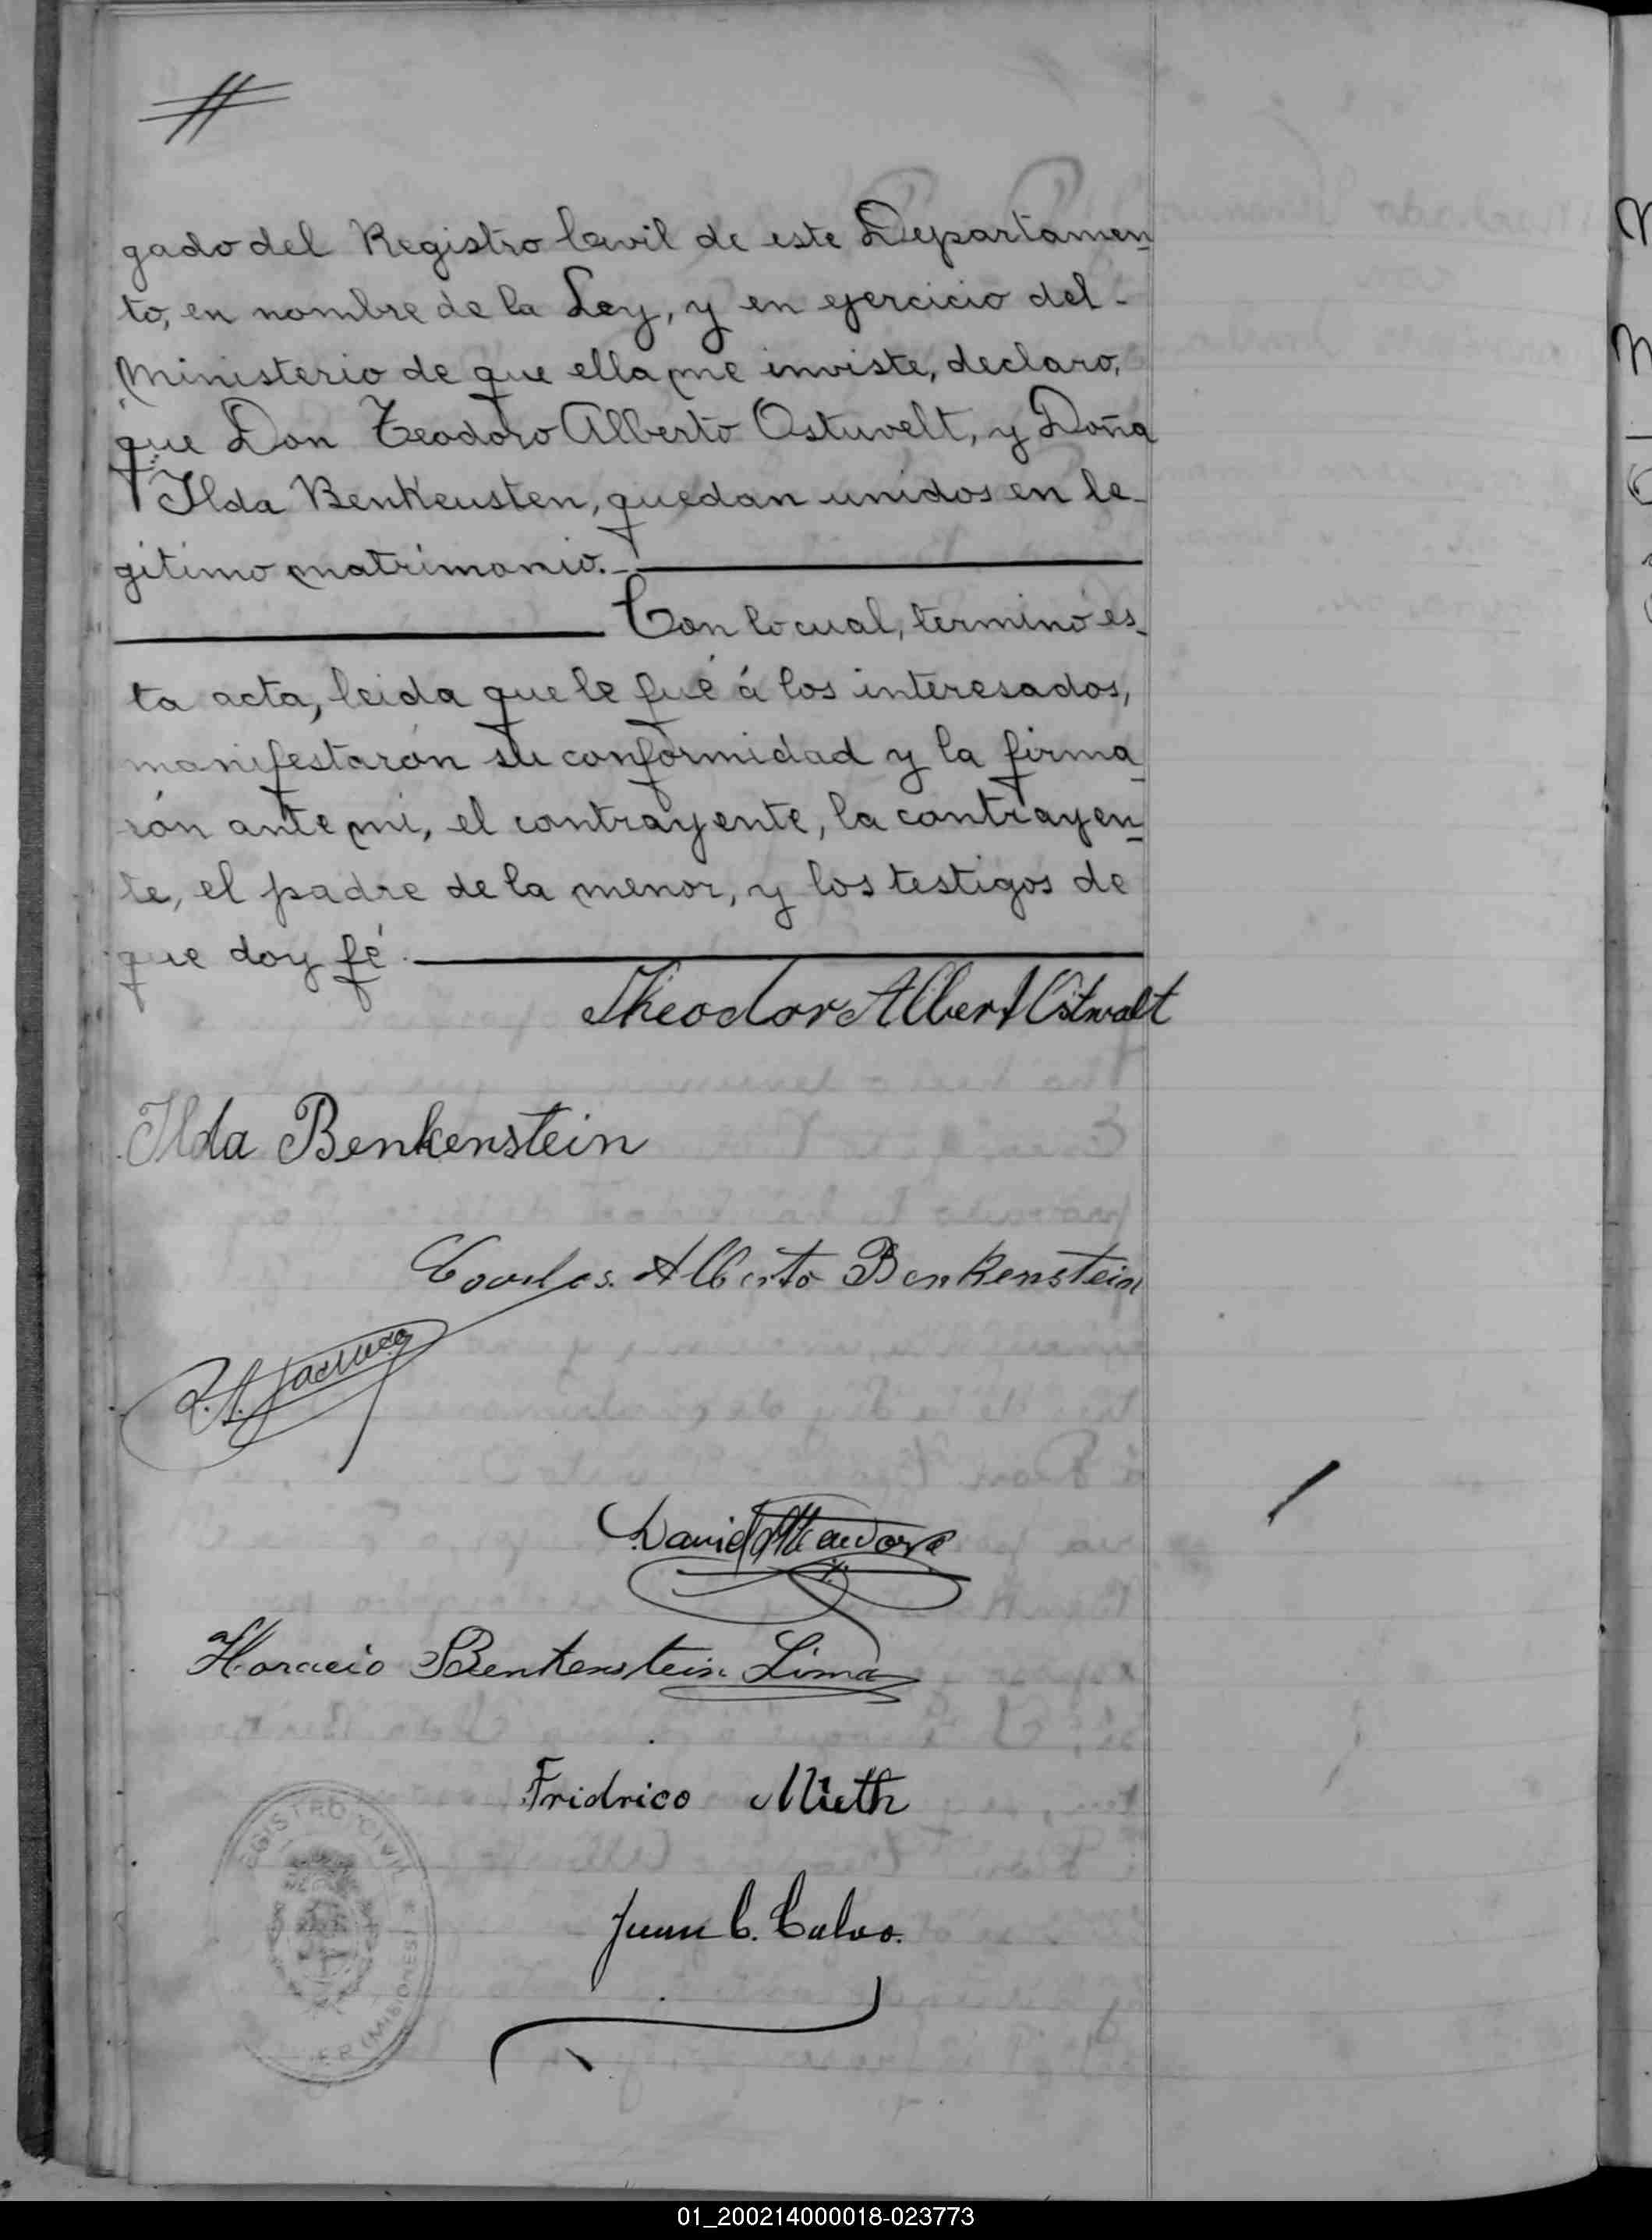 gado del Registro Civil de este Departamen
to, en nombre de la Ley, y en ejercicio del-
Ministerio de que ella me inviste, declaro,
que Don Teodoro Alberto Ostuvelt, y Doña
Ilda Benkeusten, quedan unidos en le-
gitimo matrimonio.-
Con lo cual, terminó es-
ta acta, leida que le fué á los interesados,
manifestarón su conformidad y la firma
rón ante mi, el contrayente, la contrayen
te, el padre de la menor, y los testigos de
que doy fé.
Theodor Albert Ostwalt
Ilda Benkenstein
Carlos. Alberto Benkenstein
David
Horacio Benkenstein Lima
Fridrico Mieth
Juan C. Calvo.
REGISTRO CIVIL
(MISIONES)
01_200214000018-023773